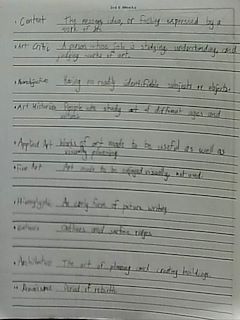 • Content The message, idea, or feeling expressed by a
work of art
• Art Critic A person whose job is studying, understanding, and
judging works of art.
• Nonobjective Having no readily identifiable subjects or objects
• Art Historian People who study art of different ages and
• Applied Art Works of art made to be useful as well as
visually pleasing
• Fine Art Art made to be enjoyed visually, not used
• Hieroglyphic An early form of picture writing
• Outlines and surface ridges
• Architecture The art of planning and creating buildings
• Renaissance Period of rebirth